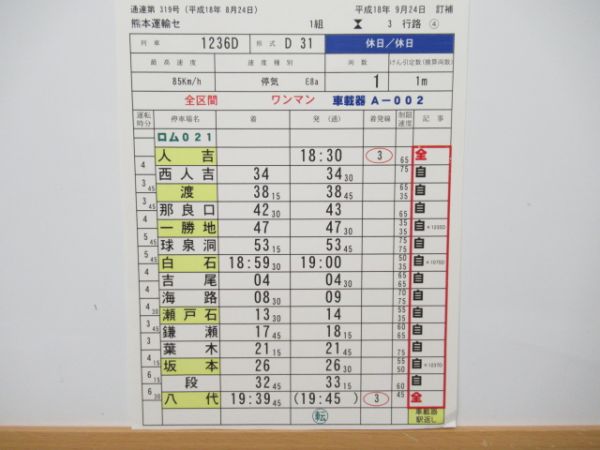 通達第 319号 (平成18年 8月24日) 平成18年 9月24日 訂補
熊本運輸セ 1組 3 行路 ④
列車 1236D 形式 D 31 休日/休日
最高速度 速度種別 両数 けん引定数(換算両数)
85Km/h 停気 E8a 1 1m
全区間 ワンマン 車載器 A-002
運転時分 停車場名 着 発(通) 着発線 制限速度 記事
ロム021
人吉 18:30 3 65 全
4 西人吉 34 34 30 75 自
3 45 渡 38 15 38 45 65 35 自
3 45 那良口 42 30 43 65 自
4 一勝地 47 47 30 35 自 ×1235D
5 45 球泉洞 53 15 53 45 75 75 自
5 45 白石 18:59 30 19:00 50 35 自
4 吉尾 04 04 30 自
4 海路 08 30 09 70 75 自
4 30 瀬戸石 13 30 14 55 35 自
3 45 鎌瀬 17 45 18 15 60 65 自
3 葉木 21 15 21 45 75 自
4 15 坂本 26 26 30 55 50 自 ×1237D
6 15 段 32 45 33 15 60 自
6 30 八代 19:39 45 (19:45) 3 45 全
転 車載器
駅返し